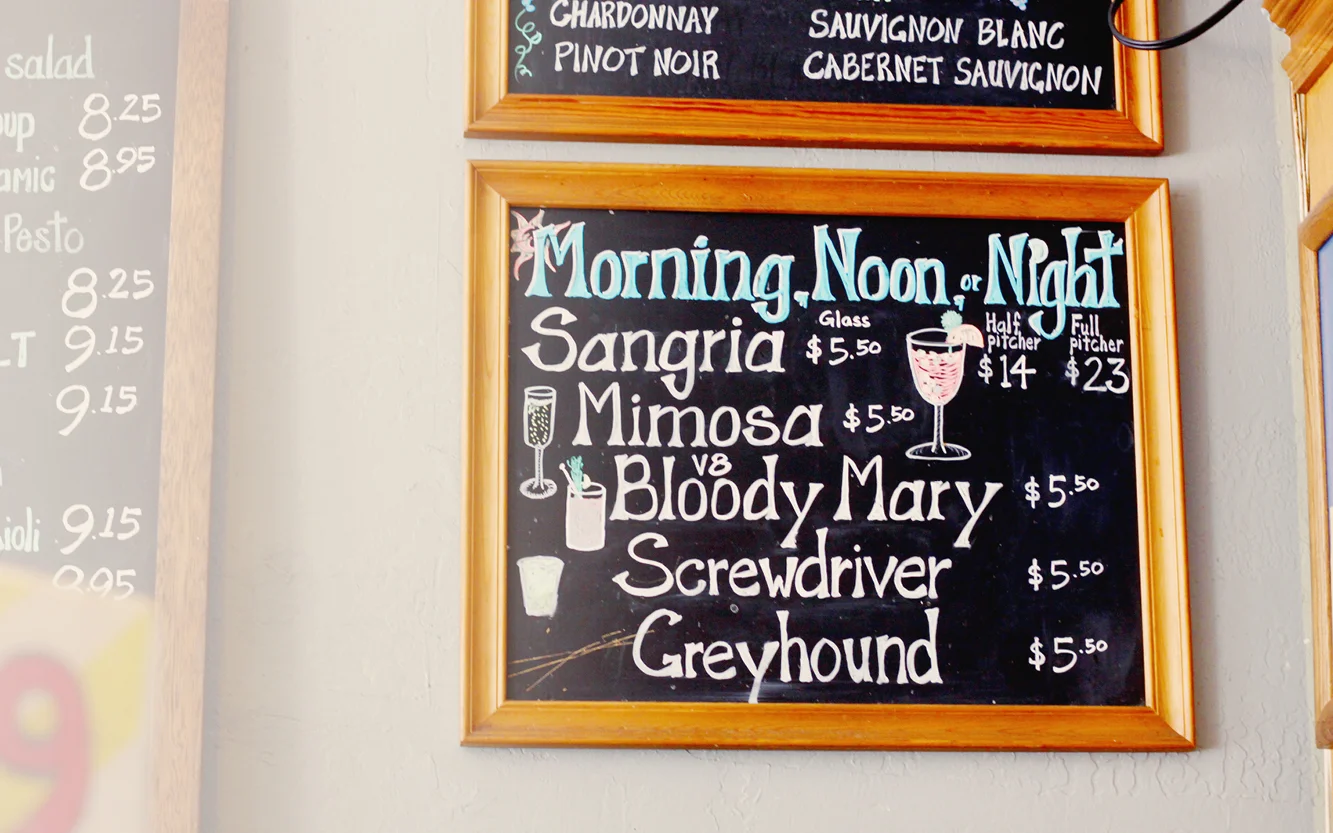 salad
8.25
8.95
Pesto
8.25
9.15
9.15
9.15
CHARDONNAY SAUVIGNON BLANC
PINOT NOIR CABERNET SAUVIGNON
Morning, Noon, or Night
Glass Half pitcher Full pitcher
Sangria $5.50 $14 $23
Mimosa $5.50
V8
Bloody Mary $5.50
Screwdriver $5.50
Greyhound $5.50
9